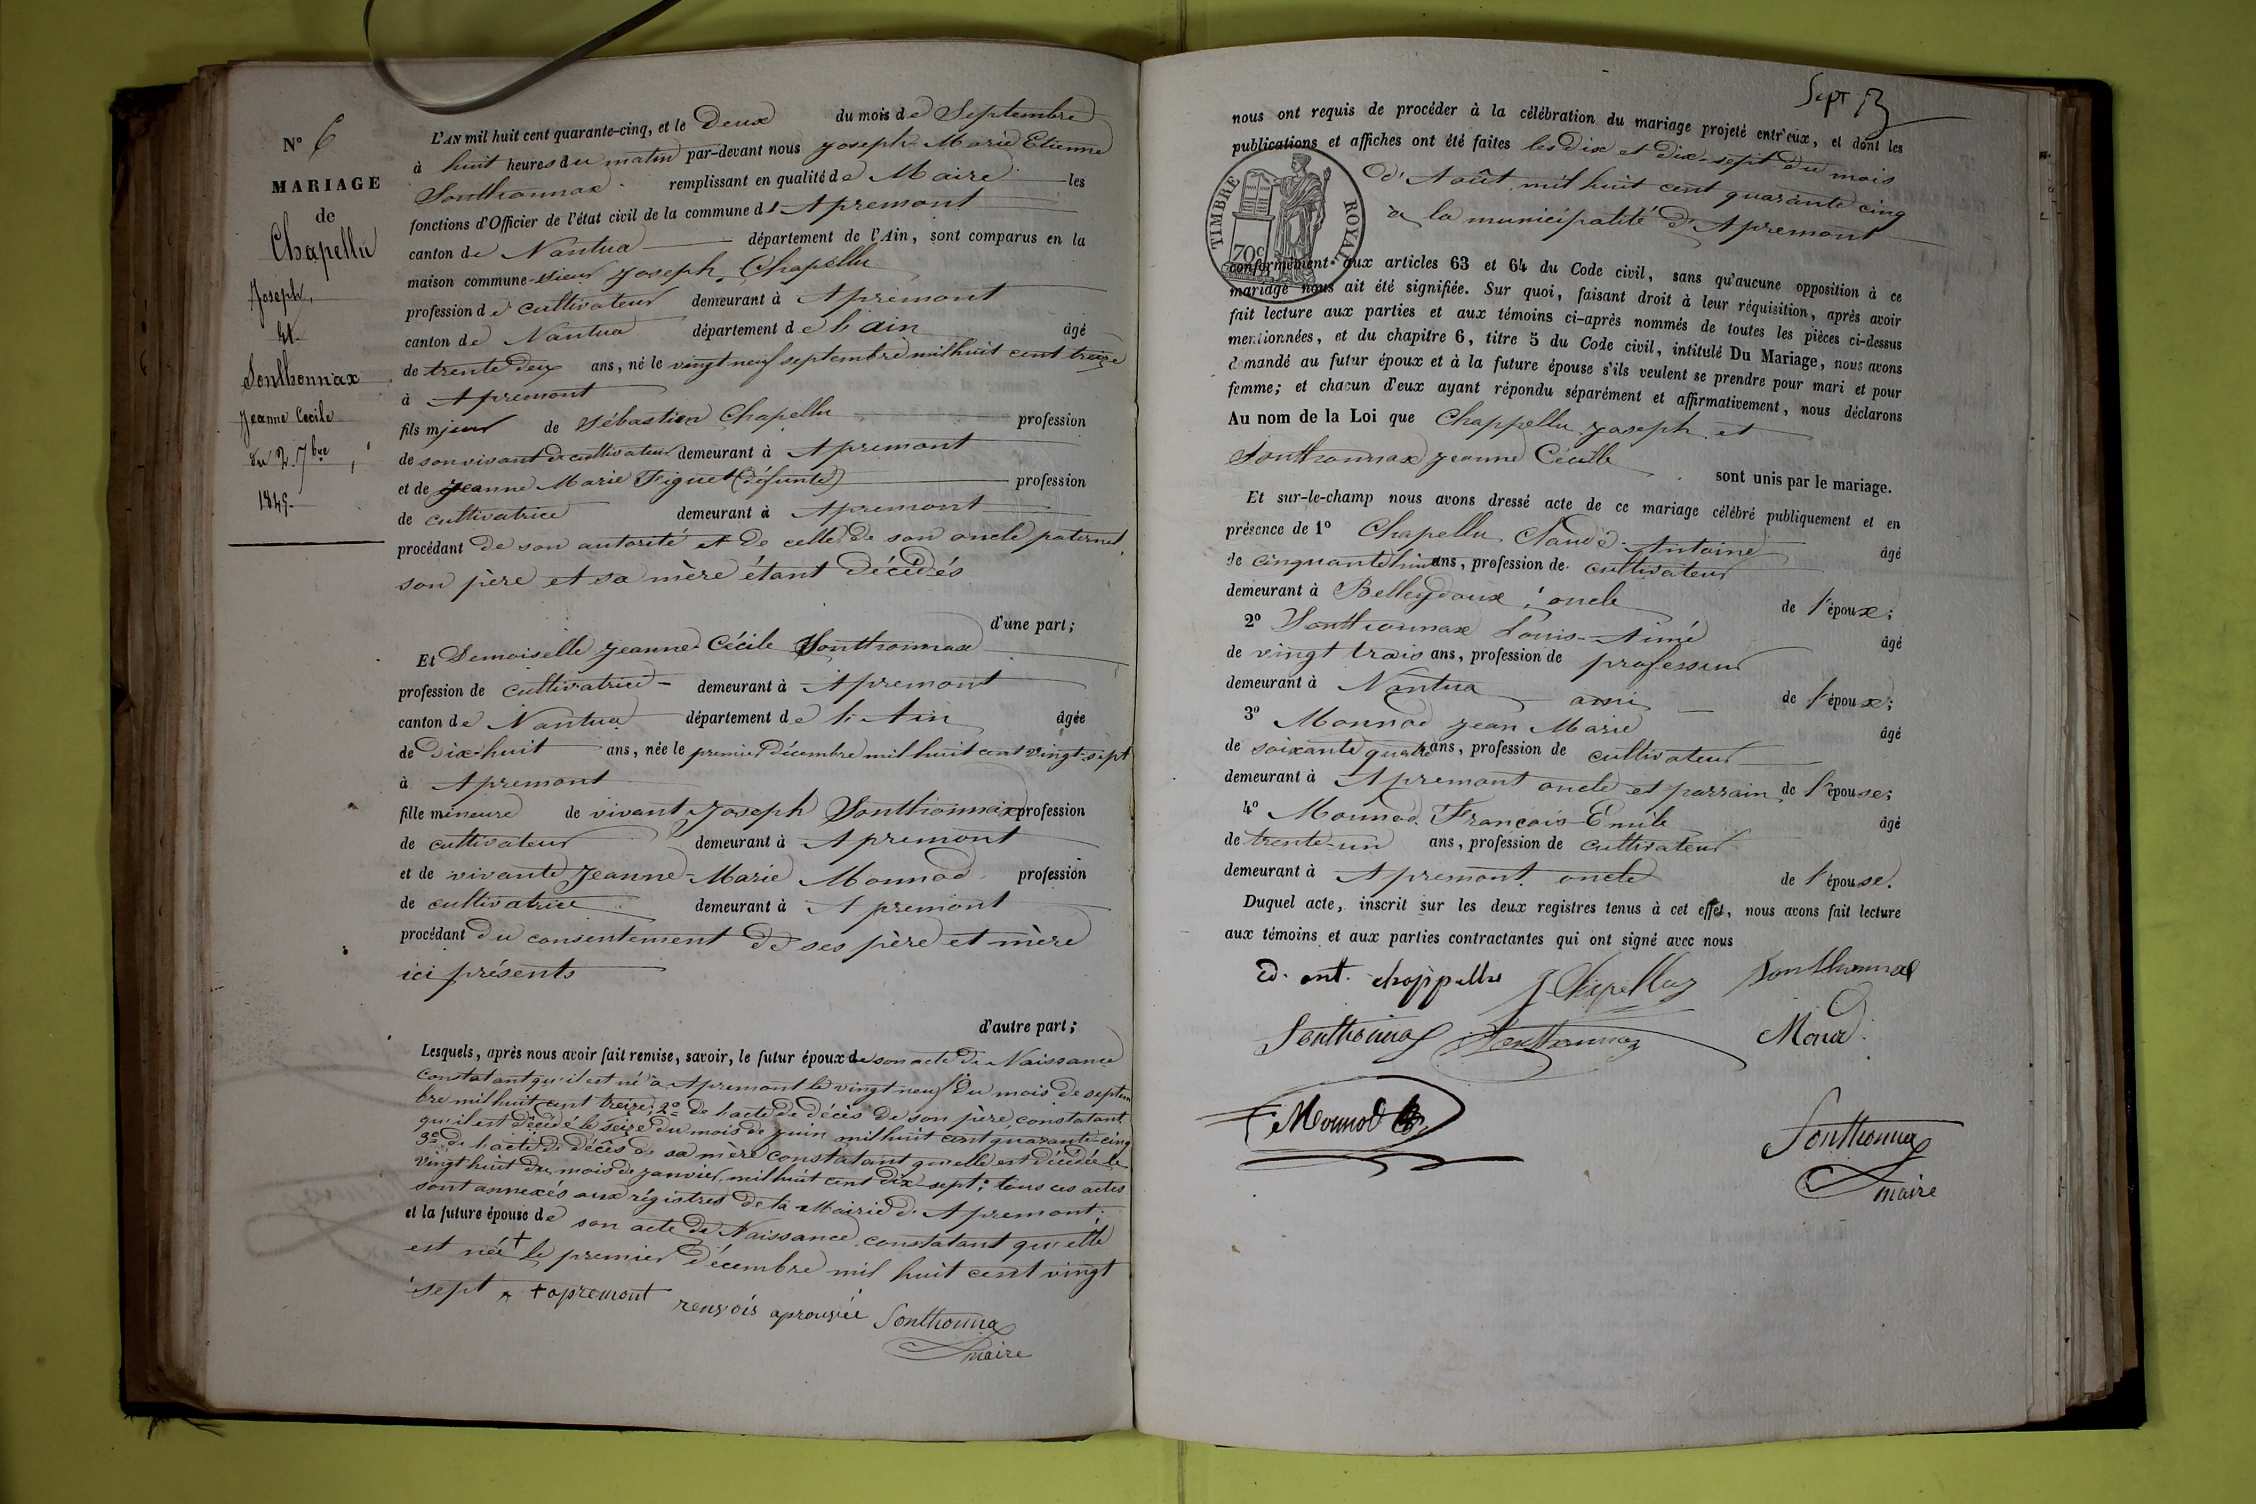 N° 6
MARIAGE
de
Chapellu
Joseph,
et
Sonthonnax
Jeanne Cecile
du 2 7bre
1845.
L'AN mil huit cent quarante-cinq, et le Deux du mois de Septembre
à huit heures du matin par-devant nous Joseph-Marie Etienne
Sonthonnax remplissant en qualité de Maire les
fonctions d'Officier de l'état civil de la commune d'Apremont
canton de Nantua département de l'Ain, sont comparus en la
maison commune sieur Joseph Chapellu
profession de cultivateur demeurant à Apremont
canton de Nantua département de l'ain âgé
de trente deux ans, né le vingt neuf septembre mil huit cent treize
à Apremont
fils mjeur de Sébastien Chapellu profession
de son vivant de cultivateur demeurant à Apremont
et de Jeanne Marie Figuet (défunte) profession
de cultivatrice demeurant à Apremont
procédant de son autorité et de celle de son oncle paternel,
son père et sa mère étant décédés
d'une part;
Et Demoiselle Jeanne Cécile Sonthonnax
profession de cultivatrice demeurant à Apremont
canton de Nantua département de l'Ain âgée
de Dix-huit ans, née le premier décembre mil huit cent vingt-sept
à Apremont
fille mineure de vivant Joseph Sonthonnax profession
de cultivateur demeurant à Apremont
et de vivante Jeanne-Marie Mounod profession
de cultivatrice demeurant à Apremont
procédant du consentement de ses père et mère
ici présents
d'autre part;
Lesquels, après nous avoir fait remise, savoir, le futur époux de son acte de Naissance
constatant qu'il est né à Apremont le vingt neuf du mois de septem
bre mil huit cent treize; 2° de l'acte de décès de son père, constatant
qu'il est décédé le seize du mois de juin mil huit cent quarante-cinq
3° de l'acte de décès de sa mère constatant qu'elle est décédée le
vingt huit du mois de janvier mil huit cent dix-sept: tous ces actes
sont annexés aux régistres de la Mairie d'Apremont.
et la future épouse de son acte de Naissance constatant qu'elle
est née + le premier Décembre mil huit cent vingt
sept + apremont renvois aprouvée Sonthonnax
maire
Sept
nous ont requis de procéder à la célébration du mariage projeté entr'eux, et dont les
publications et affiches ont été faites les dix et dix-sept du mois
d'Août mil huit cent quarante cinq
à la municipalité d'Apremont
TIMBRE ROYAL
70c
conformément aux articles 63 et 64 du Code civil, sans qu'aucune opposition à ce
mariage nous ait été signifiée. Sur quoi, faisant droit à leur réquisition, après avoir
fait lecture aux parties et aux témoins ci-après nommés de toutes les pièces ci-dessus
mentionnées, et du chapitre 6, titre 5 du Code civil, intitulé Du Mariage, nous avons
demandé au futur époux et à la future épouse s'ils veulent se prendre pour mari et pour
femme; et chacun d'eux ayant répondu séparément et affirmativement, nous déclarons
Au nom de la Loi que Chappellu Joseph et
Sonthonnax Jeanne Cécille sont unis par le mariage.
Et sur-le-champ nous avons dressé acte de ce mariage célébré publiquement et en
présence de 1° Chapellu Claude-Antoine âgé
de cinquante huit ans, profession de cultivateur
demeurant à Belleydoux, oncle de l'époux;
2° Sonthonnax Louis-Aimé âgé
de vingt trois ans, profession de professeur
demeurant à Nantua ami de l'époux;
3° Mounod Jean Marie âgé
de soixante quatre ans, profession de cultivateur
demeurant à Apremont oncle et parrain de l'épouse;
4° Mounod François-Emile âgé
de trente-un ans, profession de cultivateur
demeurant à Apremont oncle de l'épouse.
Duquel acte, inscrit sur les deux registres tenus à cet effet, nous avons fait lecture
aux témoins et aux parties contractantes qui ont signé avec nous
ant. chappellu J. Chapelluz Sonthonnax
Sonthonnax Sonthonnax Monod
Mounod
Sonthonnax
maire